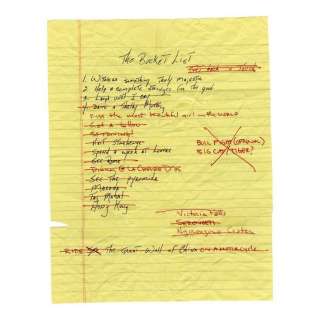 The Bucket List
1. Witness something truly majestic
2. Help a complete stranger for the good
3. Laugh until I cry
4. Drive a Shelby Mustang
Kiss the most beautiful girl in the world
Get a tattoo
Skydiving
Visit Stonehenge
Spend a week at Louvre
See Rome
Dinner @ La Chevre D'or
See the pyramids
Taj Mahal
Hong Kong
Victoria Falls
Serengeti
Ngorongoro Crater
Ride the Great Wall of China on motorcycle